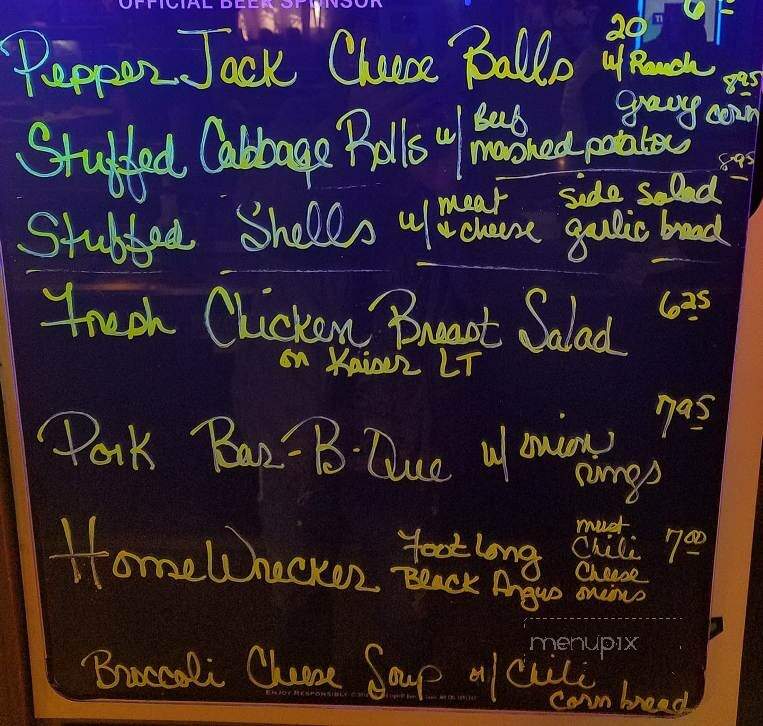 OFFICIAL BEER SPONSOR
6
Pepper Jack Cheese Balls 20 w/ Ranch
8.95
Stuffed Cabbage Rolls w/ Beef mashed potatoes gravy corn
8.95
Stuffed Shells w/ meat & cheese side salad garlic bread
Fresh Chicken Breast Salad 6.25
on Kaiser LT
Pork Bar-B-Que w/ onion rings 7.95
HomeWrecker Foot Long Black Angus must Chili Cheese onions 7.00
menupix
Broccoli Cheese Soup or/ Chili
corn bread
ENJOY RESPONSIBLY